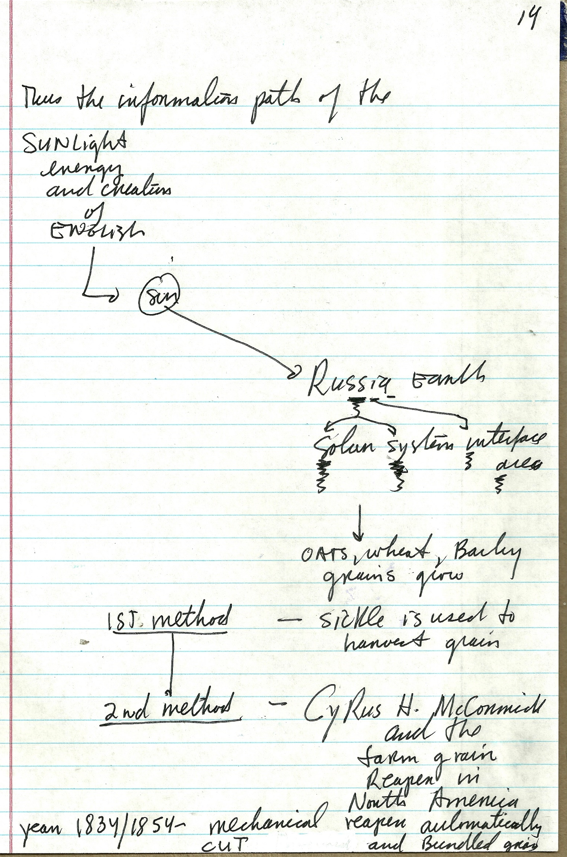 14
Thus the information path of the
SUNlight
energy
and creation
of
ENGlish
sun
Russia Earth
Solar System interface
area
OATS, wheat, Barley
grains grow
1ST. method — sickle is used to
harvest grain
2nd method — CyRus H. McCormick
and the
farm grain
Reaper in
North America
year 1834/1854- mechanical reaper automatically
CUT and Bundled grain